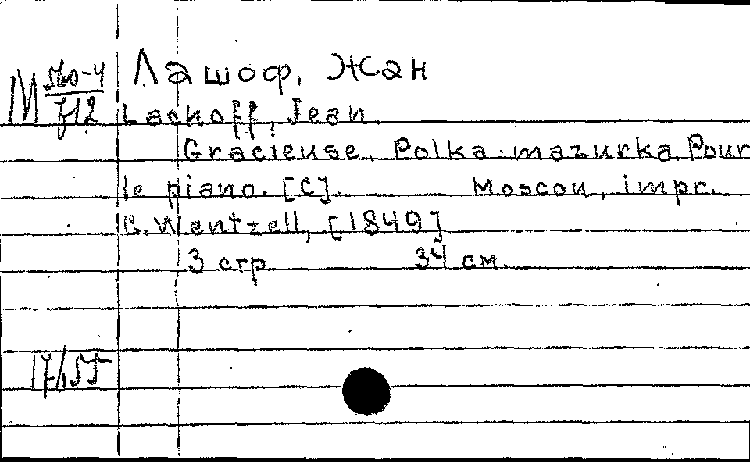 Лашоф, Жан
М 560-4/712
Lachoff, Jean.
Gracieuse. Polka-mazurka. Pour
le piano. [C]. Moscou, impr.
C. Wentzell, [1849]
3 стр. 34 см.
17/155